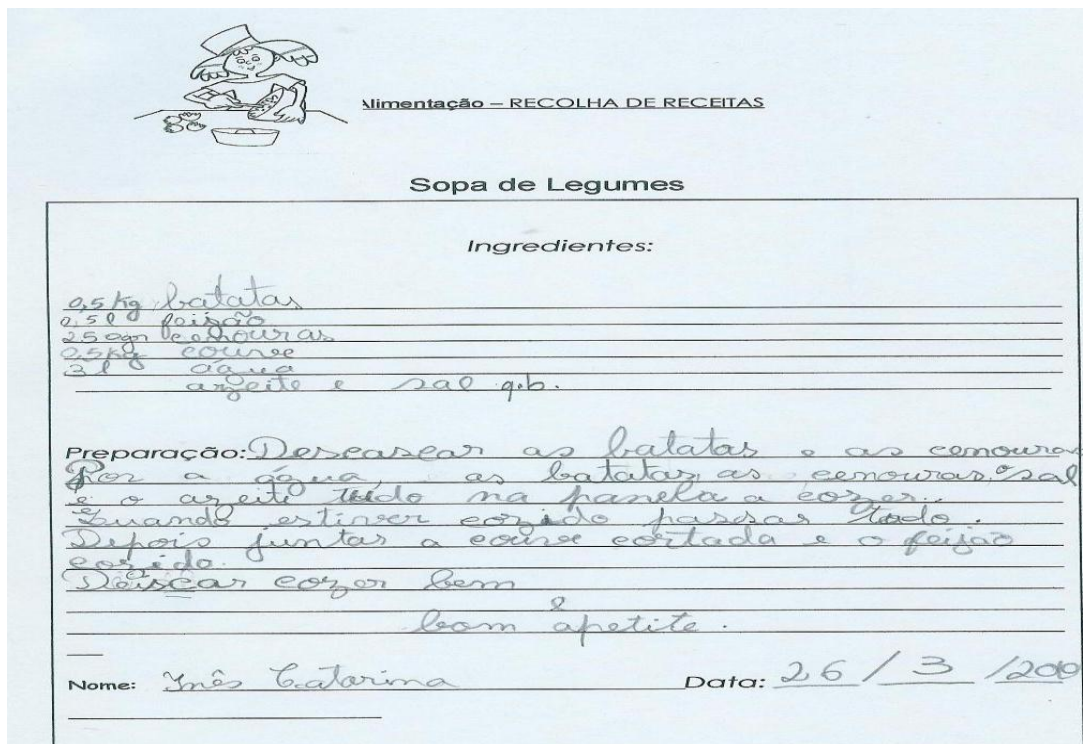 Alimentação – RECOLHA DE RECEITAS
Sopa de Legumes
Ingredientes:
0,5 Kg batatas
0,5 l feijão
250gr cenouras
0,5Kg couve
3 l água
azeite e sal q.b.
Preparação: Descascar as batatas e as cenouras
Por a água, as batatas, as cenouras, o sal
e o azeite tudo na panela a cozer.
Quando estiver cozido passar tudo.
Depois juntar a couve cortada e o feijão
cozido.
Deiscar cozer bem
bom apetite.
Nome: Inês Catarina Data: 26 / 3 /